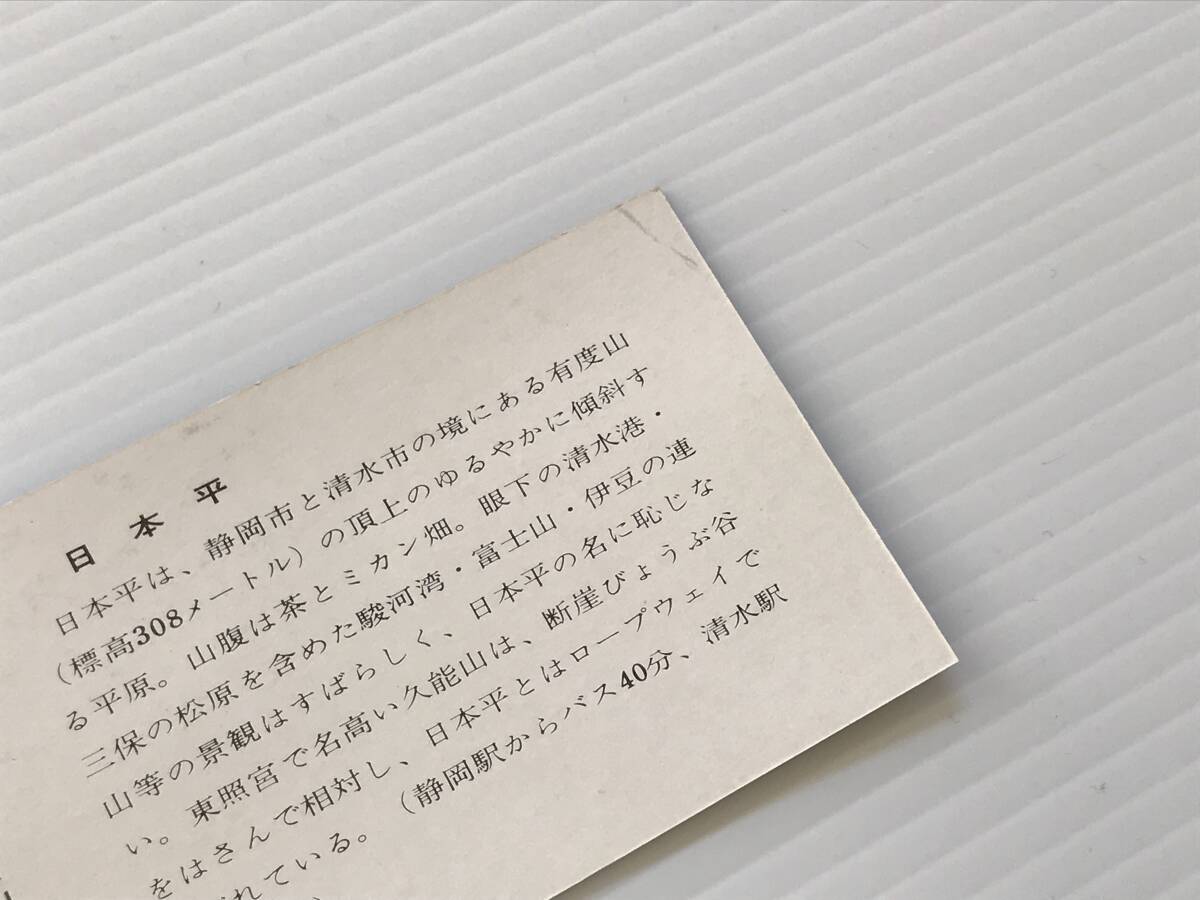 日本平
日本平は、静岡市と清水市の境にある有度山
(標高308メートル)の頂上のゆるやかに傾斜す
る平原。山腹は茶とミカン畑。眼下の清水港・
三保の松原を含めた駿河湾・富士山・伊豆の連
山等の景観はすばらしく、日本平の名に恥じな
い。東照宮で名高い久能山は、断崖びょうぶ谷
をはさんで相対し、日本平とはロープウェイで
れている。(静岡駅からバス40分、清水駅